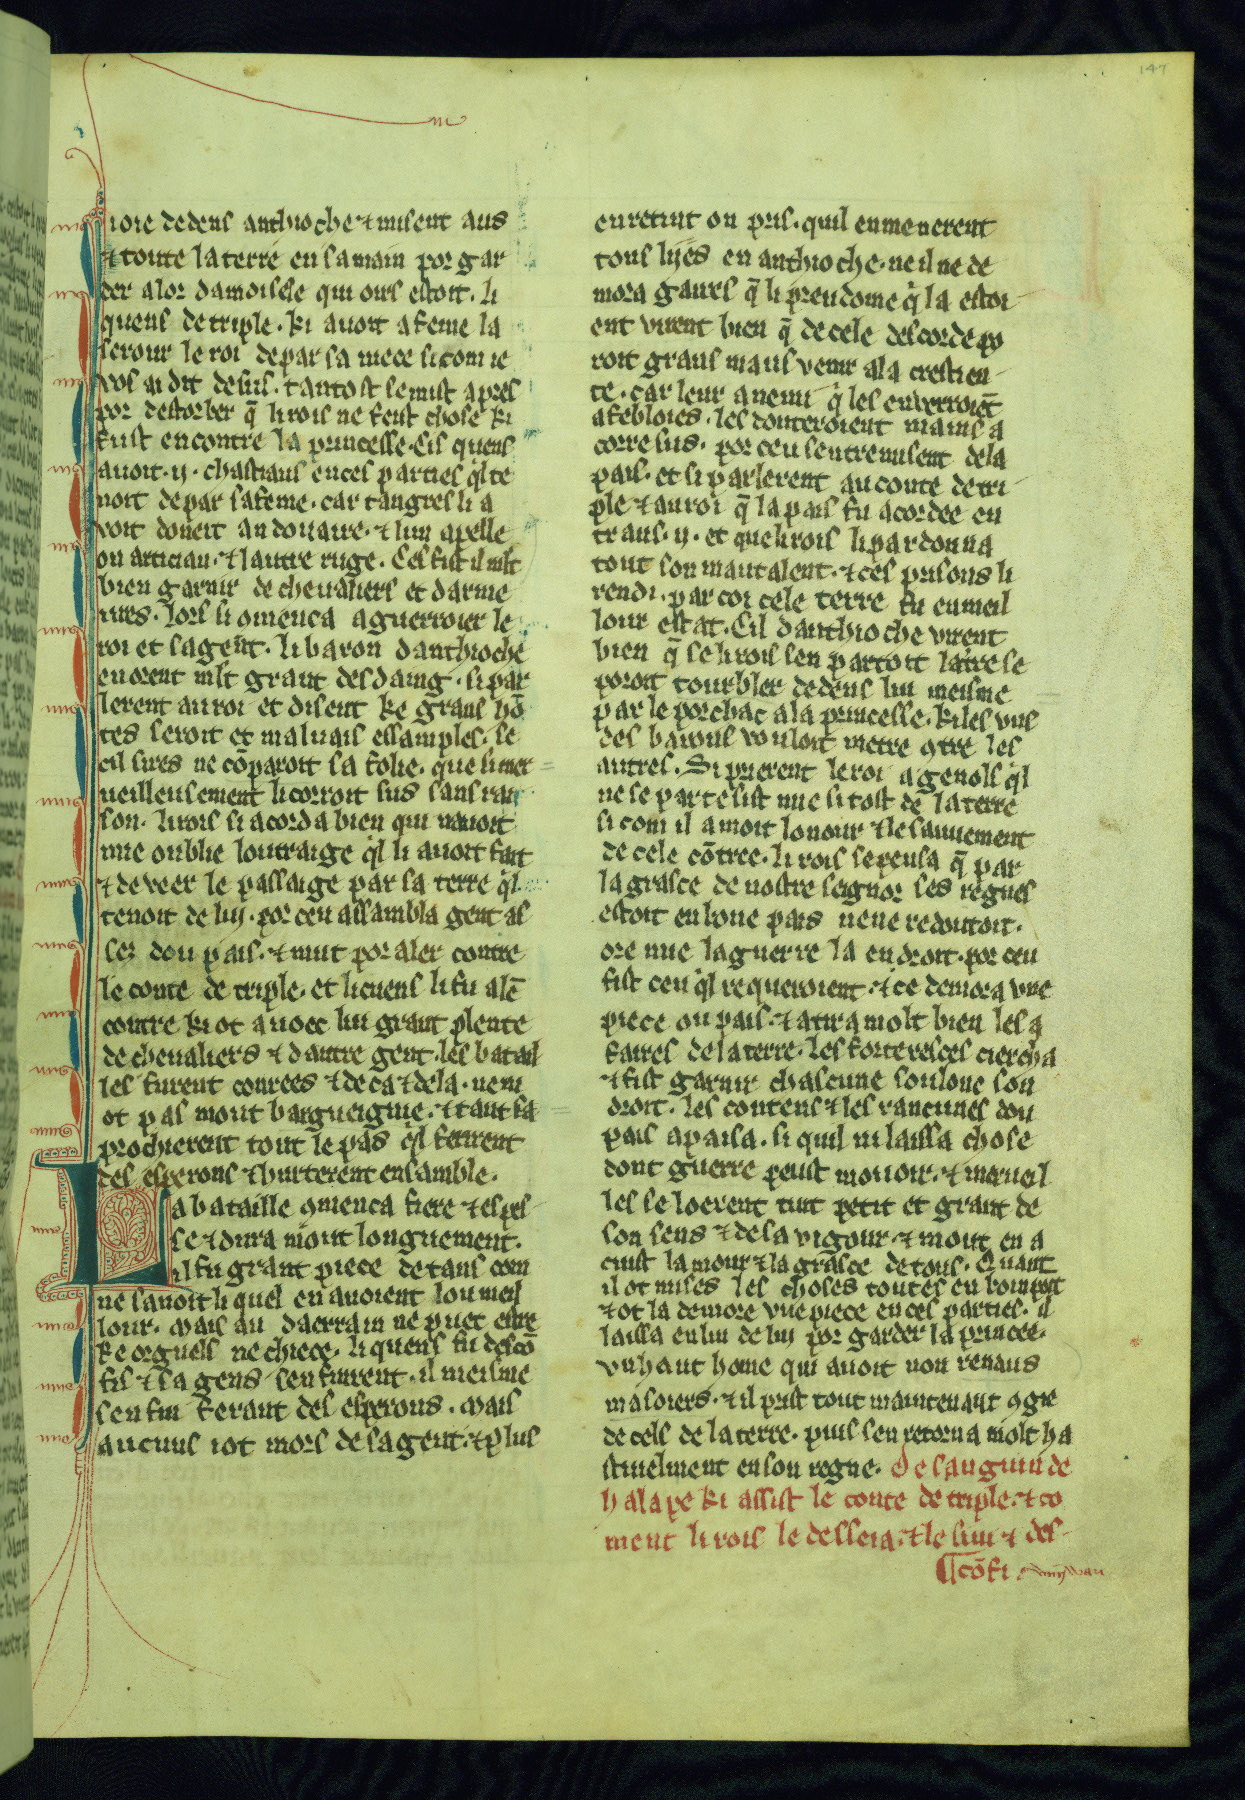 147
ioie dedens anthioche ⁊ misent aus
⁊ toute la terre en sa main por gar
der a lor damoisele qui oirs estoit. li
quens de triple. ki auoit a feme la
serour le roi de par sa mere si com ie
vos ai dit desus. tantost se mist apres
por destorber q̄ li rois ne feist chose ki
fust encontre la princesse. Cis quens
auoit .ij. chastiaus en ces parties q̓l te
noit de par sa feme. car tangres li a
voit doneit an douaire. ⁊ lun apelle
on arcican. ⁊ lautre ruge. Ces fist il ml̄t
bien garnir de cheualiers et darme
ures. Lors si omenca a guerroier le
roi et sa gent. li baron danthioche
en orent ml̄t grant desdaing. si par
lerent au roi et disent ke grans hō
tes seroit et maluais essamples. se
cil sires ne cōparoit sa folie. que si mer
ueilleusement li corroit sus sans rai
son. li rois si acorda bien qui nauoit
mie oublie loutraige q̓l li auoit fait
⁊ de veer le passaige par sa terre q̓l
tenoit de lui. por ceu assambla gent as
sez dou pais. ⁊ mut por aler contre
le conte de triple. et li cuens li fu alē
contre ki ot auoec lui grant plente
de cheualiers ⁊ dautre gent. les batail
les furent conrees ⁊ de ca ⁊ de la. nem
ot pas mout bargueignie. ⁊ tant sa
prochierent tout le pas q̓l ferirent
des esperons ⁊ hurterent ensamble.
La bataille 9menca fiere ⁊ espes
se ⁊ dura mout longuement.
il fu grant piece de tans com
ne sauoit li quel en auoient lou meil
lour. mais au daerrain ne puet estre
ke orguels ne chiece. li quens fu descō
fis ⁊ sa gens senfuirent. il meisme
sen fui ferant des esperons. mais
aucuns iot mors de sa gent. ⁊ plus
en retint on pris. quil en menerent
tous lijes en anthioche. ne il ne de
mora gaires q̄ li preudome q̓ la estoi
ent virent bien q̄ de cele descorde po
roit grans maus venir a la crestien
te. car leur anemi q̓ les enverroiēt
afebloies. les douteroient mains a
corre sus. por ceu sentremisent de la
pais. et si parlerent au conte de tri
ple ⁊ au roi q̄ la pais fu acordee en
traus .ij. et que li rois li pardonna
tout son mautalent. ⁊ ces prisons li
rendi. par coi cele terre fu en meil
lour estat. Cil danthioche virent
bien q̄ se li rois sen partoit latre se
poroit tourbler dedens lui meisme
par le porchac a la princesse. ki les vns
des barons vouloit metre 9tre les
autres. Si prierent le roi a genols q̓l
ne se partesist mie si tost de la terre
si com il amoit lonour ⁊ le sauuement
de cele cōtree. li rois se pensa q̄ par
la grasce de nostre seignor ses regnes
estoit en bone pais ne ne redoutoit.
ore mie la guerre la endroit. por ceu
fist ceu q̓l requeroient. ⁊ ce demora vne
piece ou pais. ⁊ atira molt bien les a
faires de la terre. les forteresces ciercha
⁊ fist garnir chascune soulonc son
droit. les contens ⁊ les rancunes dou
pais apaisa. si quil ni laissa chose
dont guerre peust mouoir. ⁊ merueil
les se loerent tuit petit et grant de
son sens ⁊ de sa vigour. ⁊ mout en a
cuist lamour ⁊ la grasce de tous. Quant
il ot mises les choses toutes en boin point
⁊ ot la demore vne piece en ces parties. il
laissa en liu de lui por garder la princee.
vn haut home qui auoit non renaus
masoiers. ⁊ il prist tout maintenant 9gie
de cels de la terre. puis sen retorna molt ha
stiuelment en son regne. De sanguin de
halape ki assist le conte de triple. ⁊ co
ment li rois le desseia. ⁊ le siui ⁊ des
cōfi.